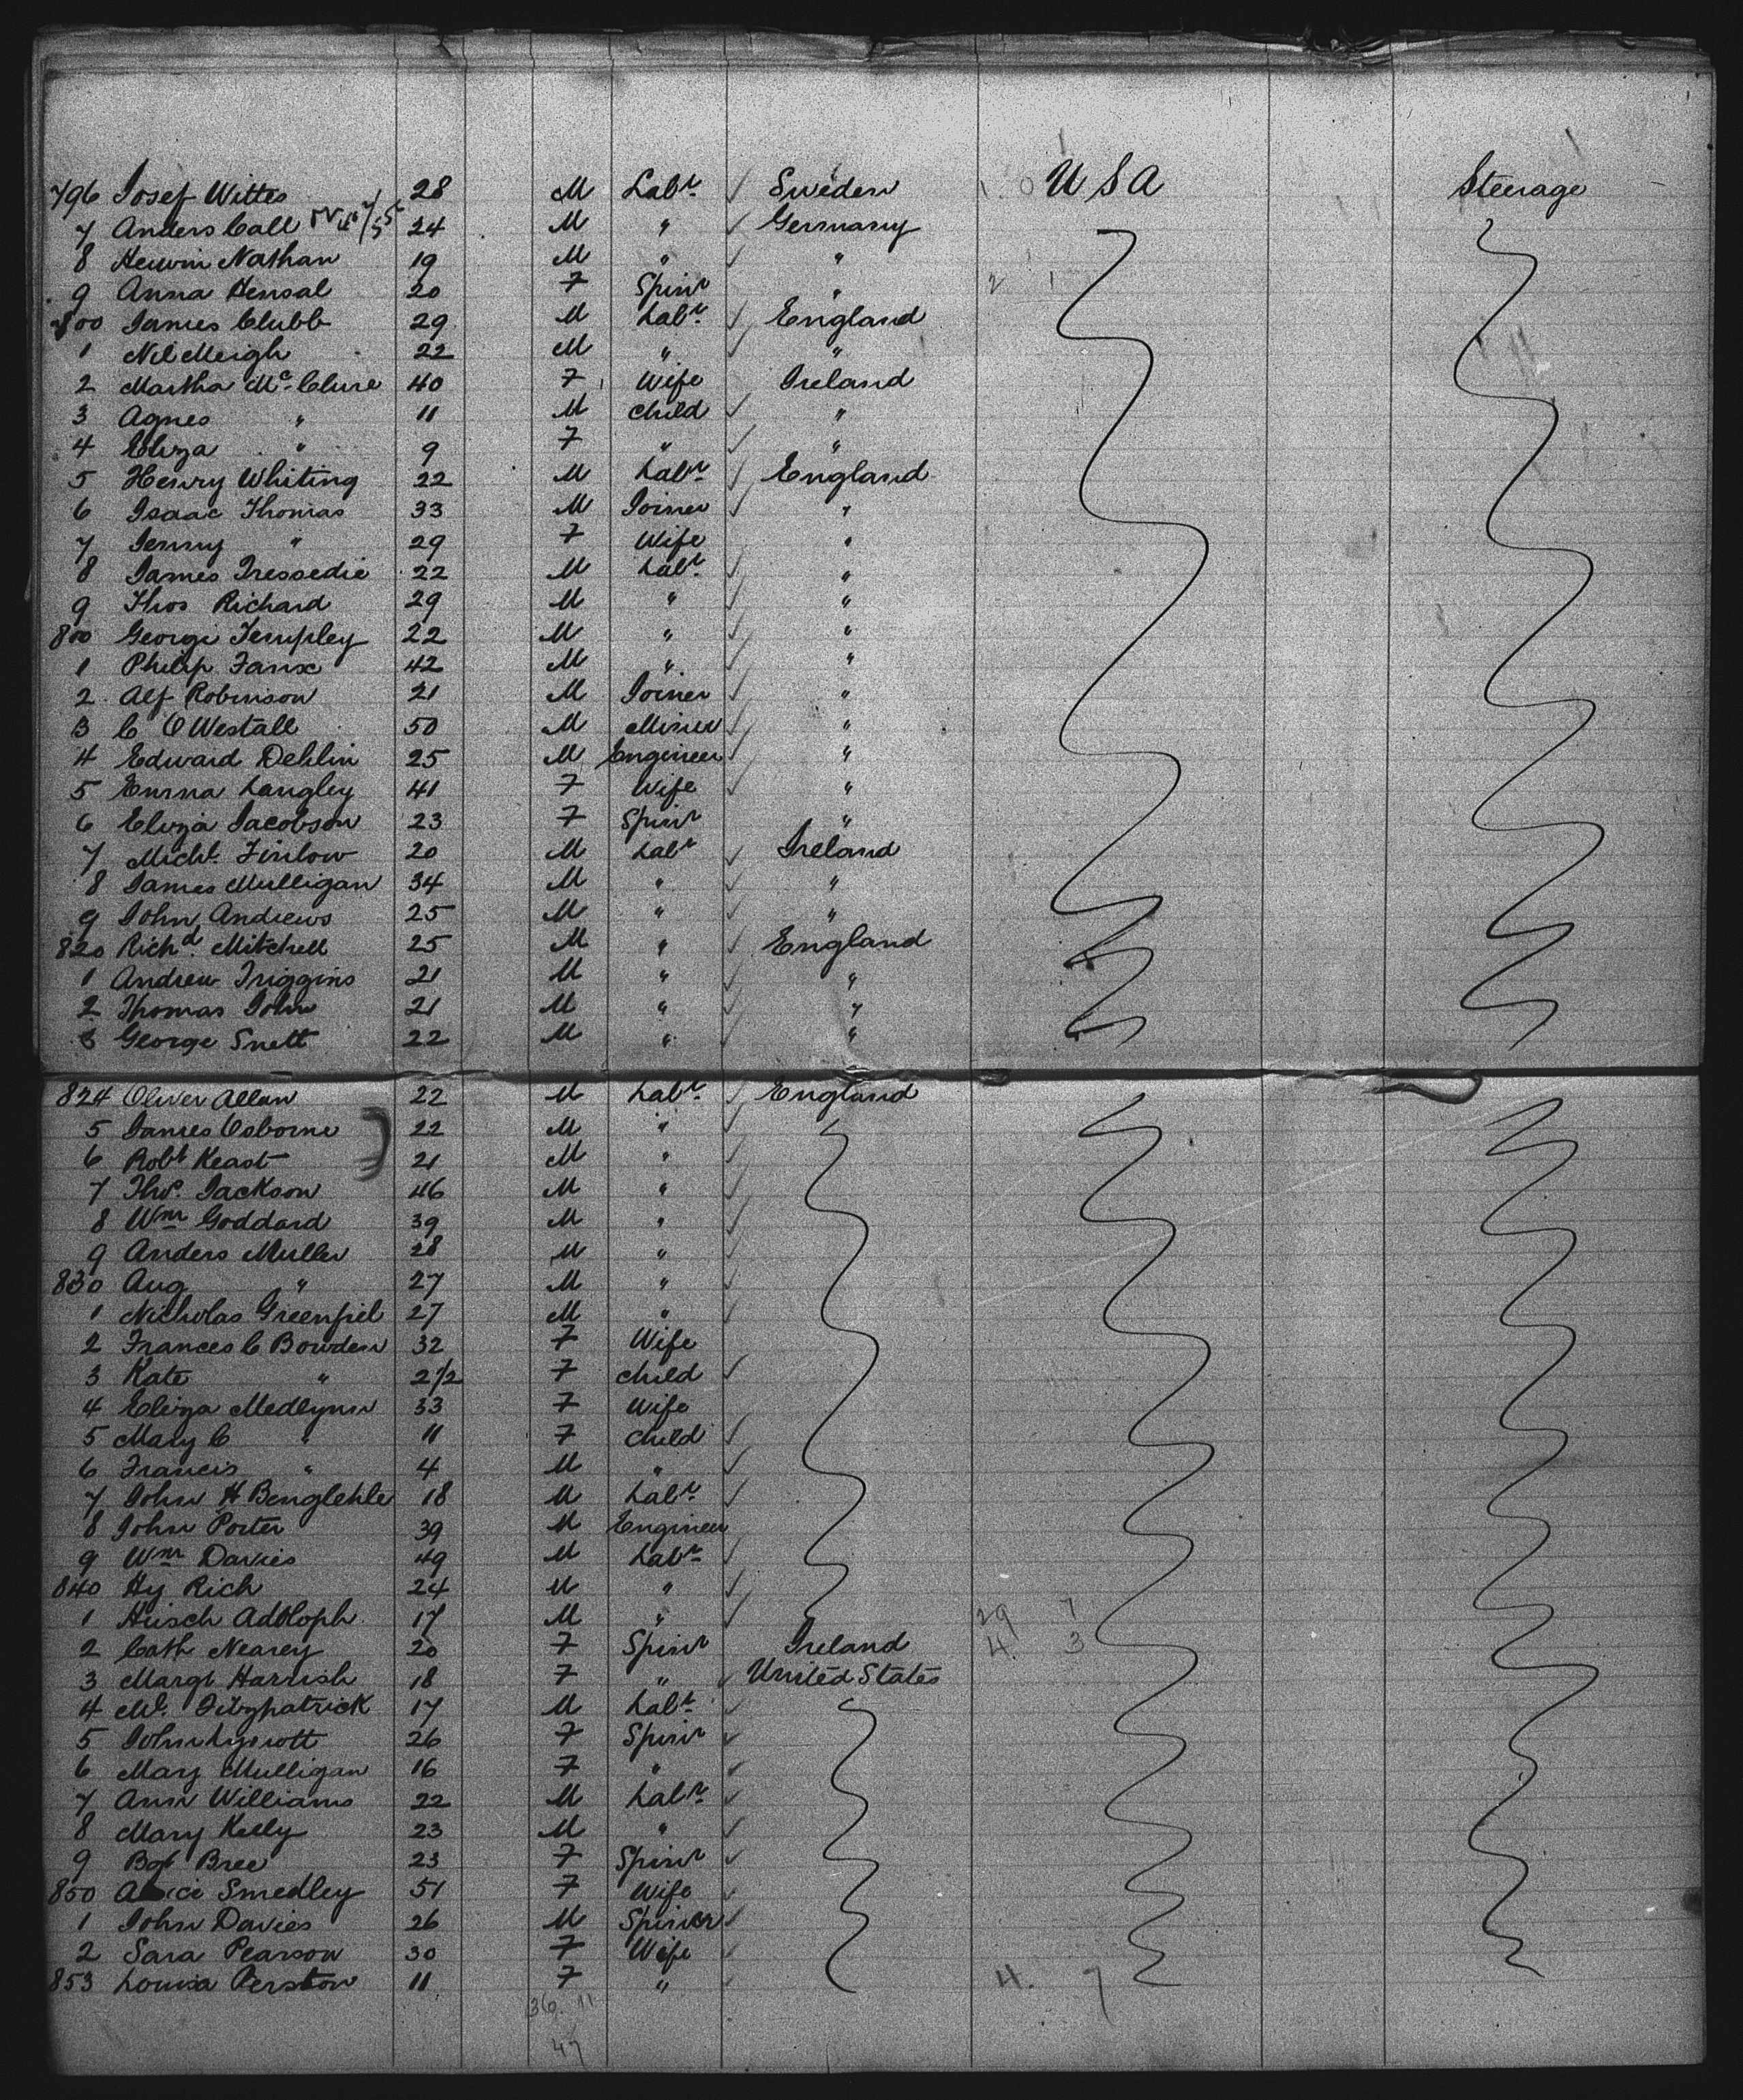 796 Josef Wittes 28 M Labr Sweden USA Steerage
7 Anders Call 24 M " Germany
8 Herwin Nathan 19 M " "
9 Anna Hensal 20 F Spinr "
800 James Clubb 29 M Labr England
1 Nil Meigh 22 M " "
2 Martha Mc Clure 40 F Wife Ireland
3 Agnes " 11 M child "
4 Eliza " 9 F " "
5 Henry Whiting 22 M Labr England
6 Isaac Thomas 33 M Joiner "
7 Jenny " 29 F Wife "
8 James Tressedie 22 M Labr "
9 Thos Richard 29 M " "
800 George Templey 22 M " "
1 Philip Fanx 42 M " "
2 Alf Robinson 21 M Joiner "
3 C O Westall 50 M Miner "
4 Edward Dehlin 25 M Engineer "
5 Emma Langley 41 F Wife "
6 Eliza Jacobson 23 F Spinr "
7 Michl Finlow 20 M Labr Ireland
8 James Mulligan 34 M " "
9 John Andrews 25 M " "
820 Richd Mitchell 25 M " England
1 Andrew Triggins 21 M " "
2 Thomas John 21 M " "
3 George Snett 22 M " "
824 Oliver Allan 22 M Labr England
5 James Osborne 22 M "
6 Robt Keast 21 M "
7 Thos. Jackson 46 M "
8 Wm Goddard 39 M "
9 Anders Muller 28 M "
830 Aug " 27 M "
1 Nicholas Greenfiel 27 M "
2 Frances C Bowden 32 F Wife
3 Kate " 2 1/2 F child
4 Eliza Medlynn 33 F Wife
5 Mary C " 11 F child
6 Francis " 4 M "
7 John H Benglehle 18 M Labr
8 John Porter 39 M Engineer
9 Wm Davies 49 M Labr
840 Hy Rich 24 M "
1 Hirsch Adoloph 17 M " 29 7
2 Cath Nearey 20 F Spinr Ireland 4. 3
3 Margt Harrish 18 F " United States
4 Ml. Fitzpatrick 17 M Labr
5 John Lyscott 26 F Spinr
6 Mary Mulligan 16 F "
7 Ann Williams 22 M Labr
8 Mary Kelly 23 M "
9 Bgt Bree 23 F Spinr
850 Alice Smedley 51 F Wife
1 John Davies 26 M Spinster
2 Sara Pearson 30 F Wife
853 Louisa Perston 11 F " 4. 7
36. 11
47